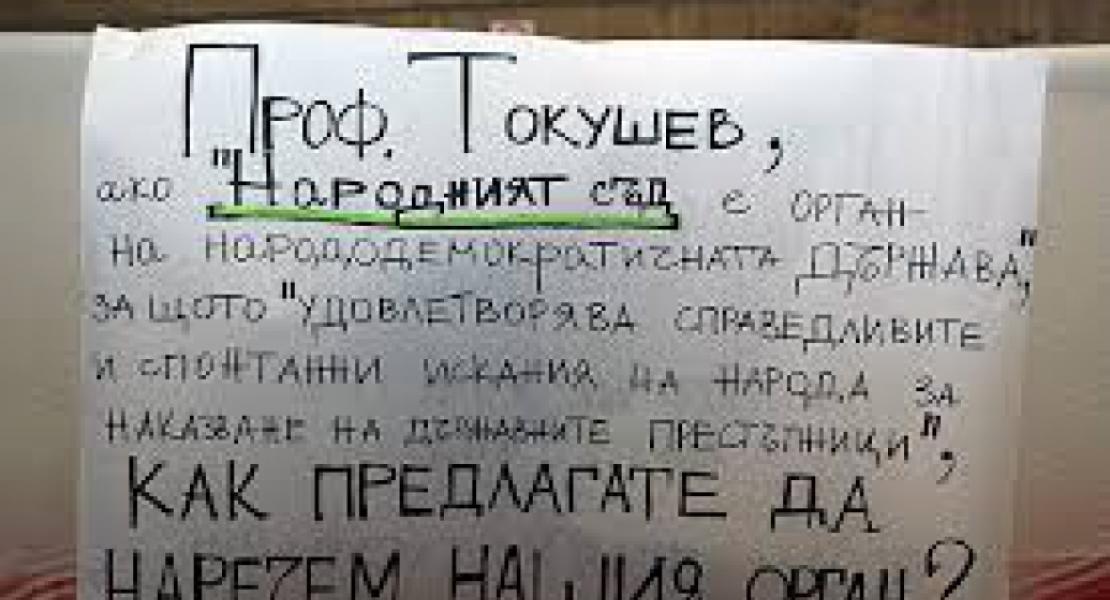 Проф. Токушев,
ако "Народният съд е орган-
на народодемократичната държава,"
защото "удовлетворява справедливите
и спонтанни искания на народа за
наказване на държавните престъпници",
КАК ПРЕДЛАГАТЕ ДА
НАРЕЧЕМ НАШИЯ ОРГАН?